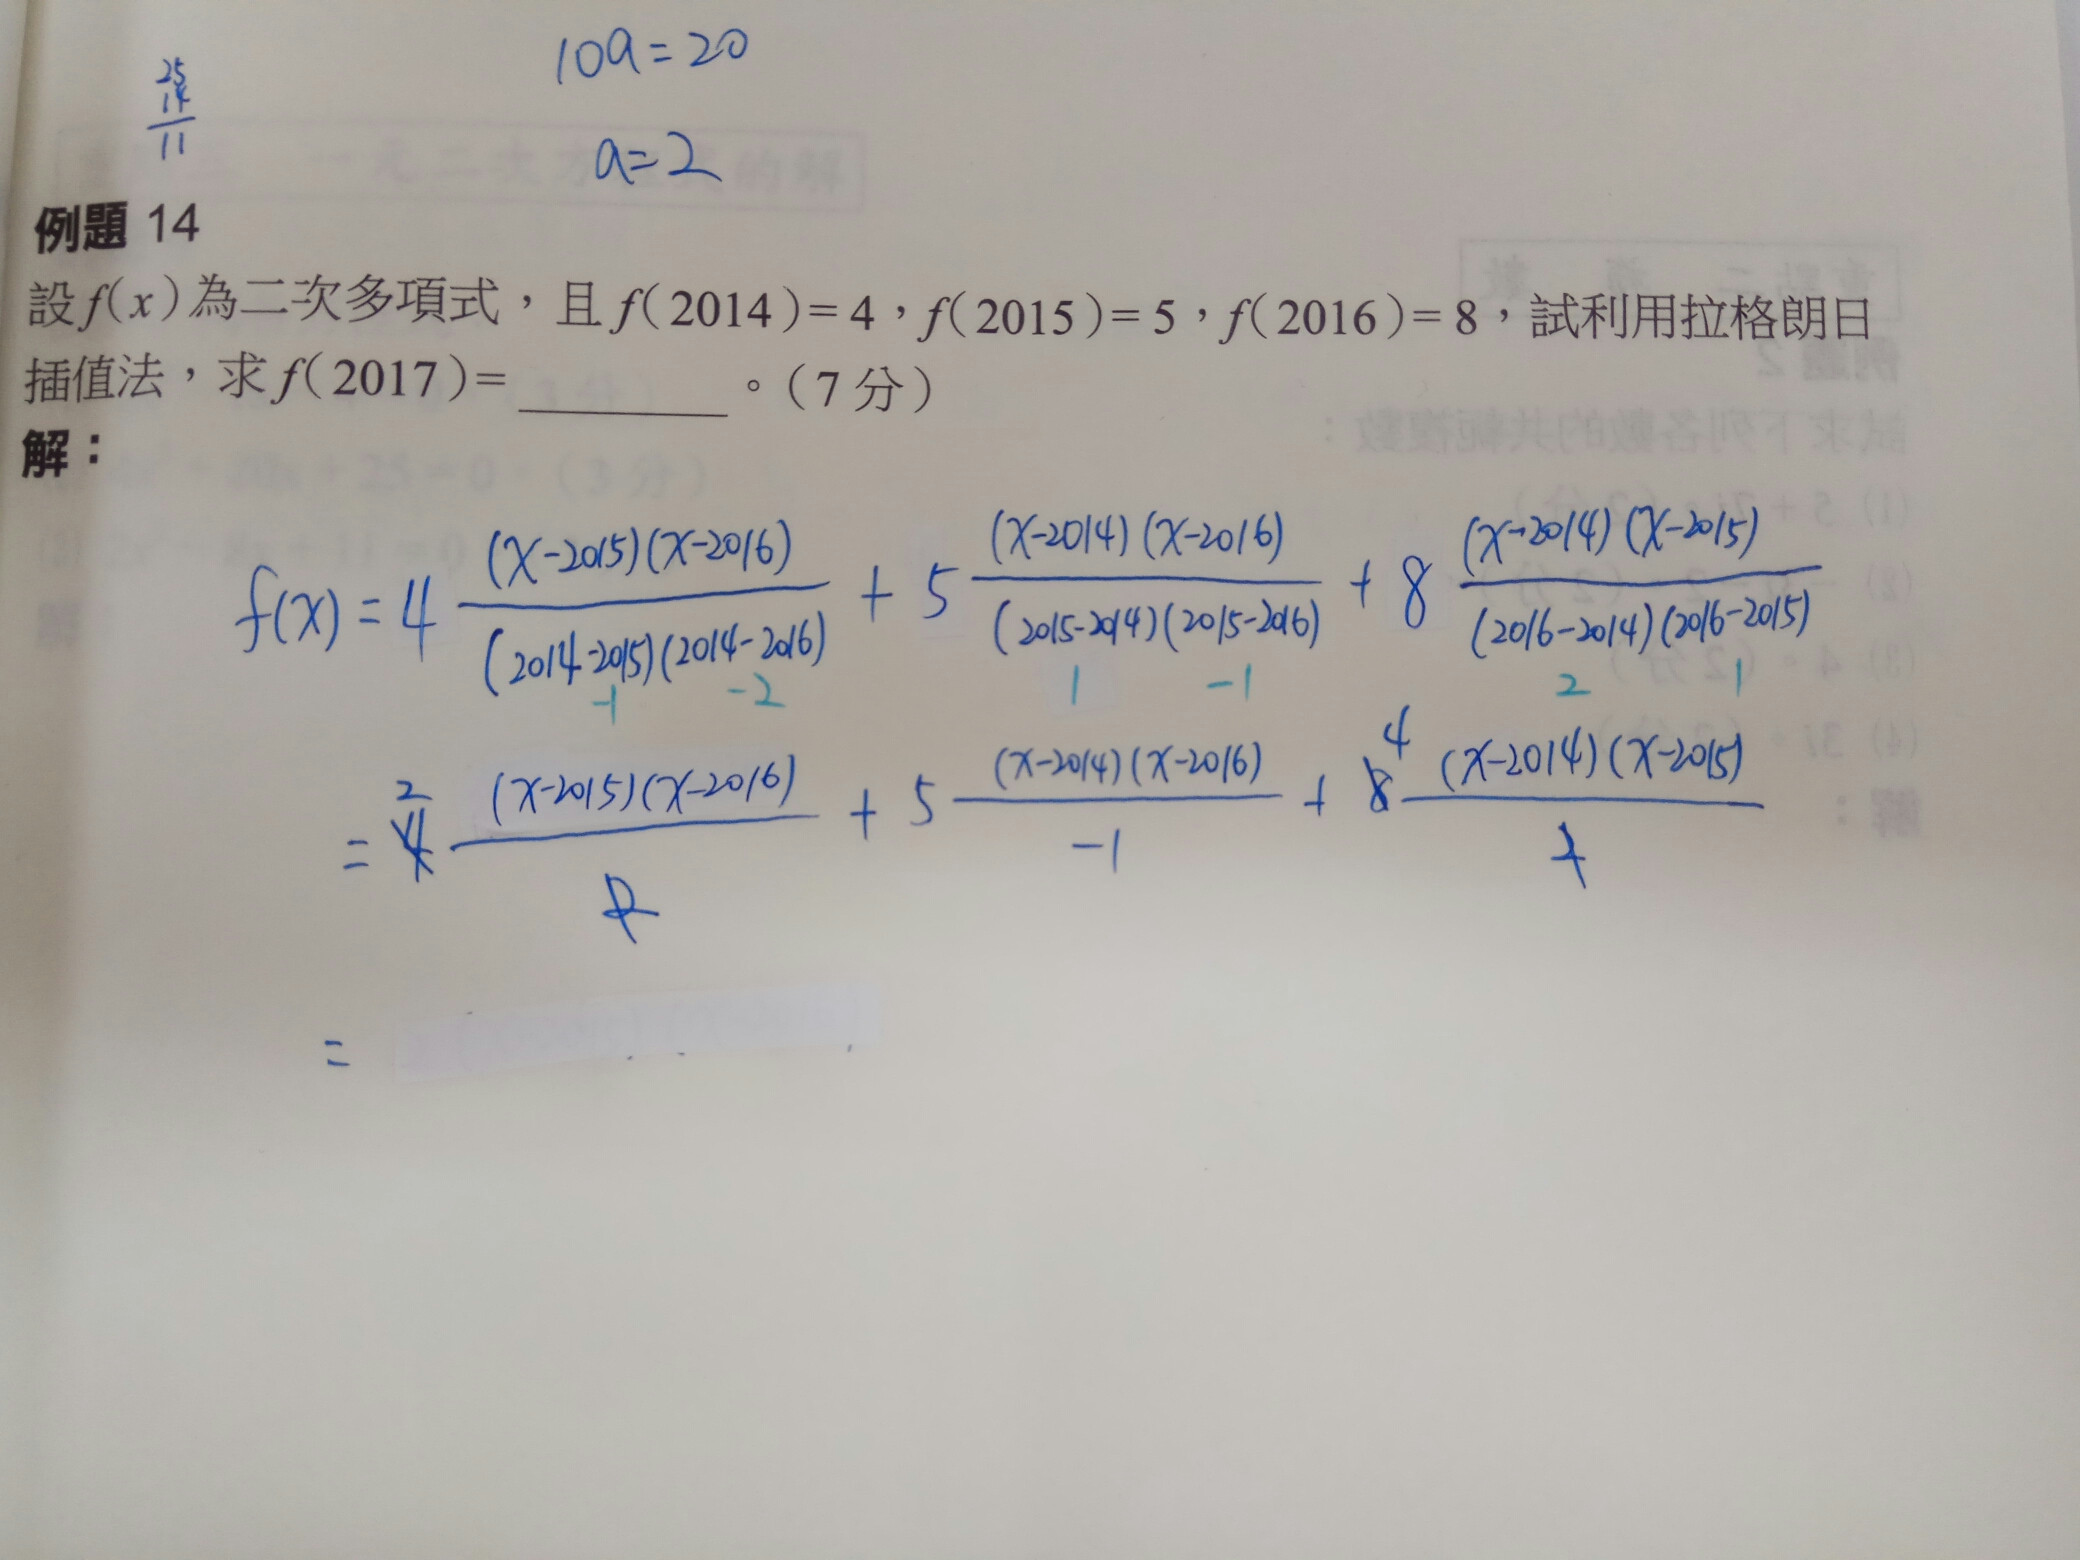 25
14
11
10a=20
a=2
例題 14
設f(x)為二次多項式，且f(2014)=4，f(2015)=5，f(2016)=8，試利用拉格朗日
插值法，求f(2017)=________。(7分)
解：
f(x)=4 (x-2015)(x-2016)/(2014-2015)(2014-2016) + 5 (x-2014)(x-2016)/(2015-2014)(2015-2016) + 8 (x-2014)(x-2015)/(2016-2014)(2016-2015)
-1 -2 1 -1 2 1
2 4
= 4 (x-2015)(x-2016)/2 + 5 (x-2014)(x-2016)/-1 + 8 (x-2014)(x-2015)/2
=